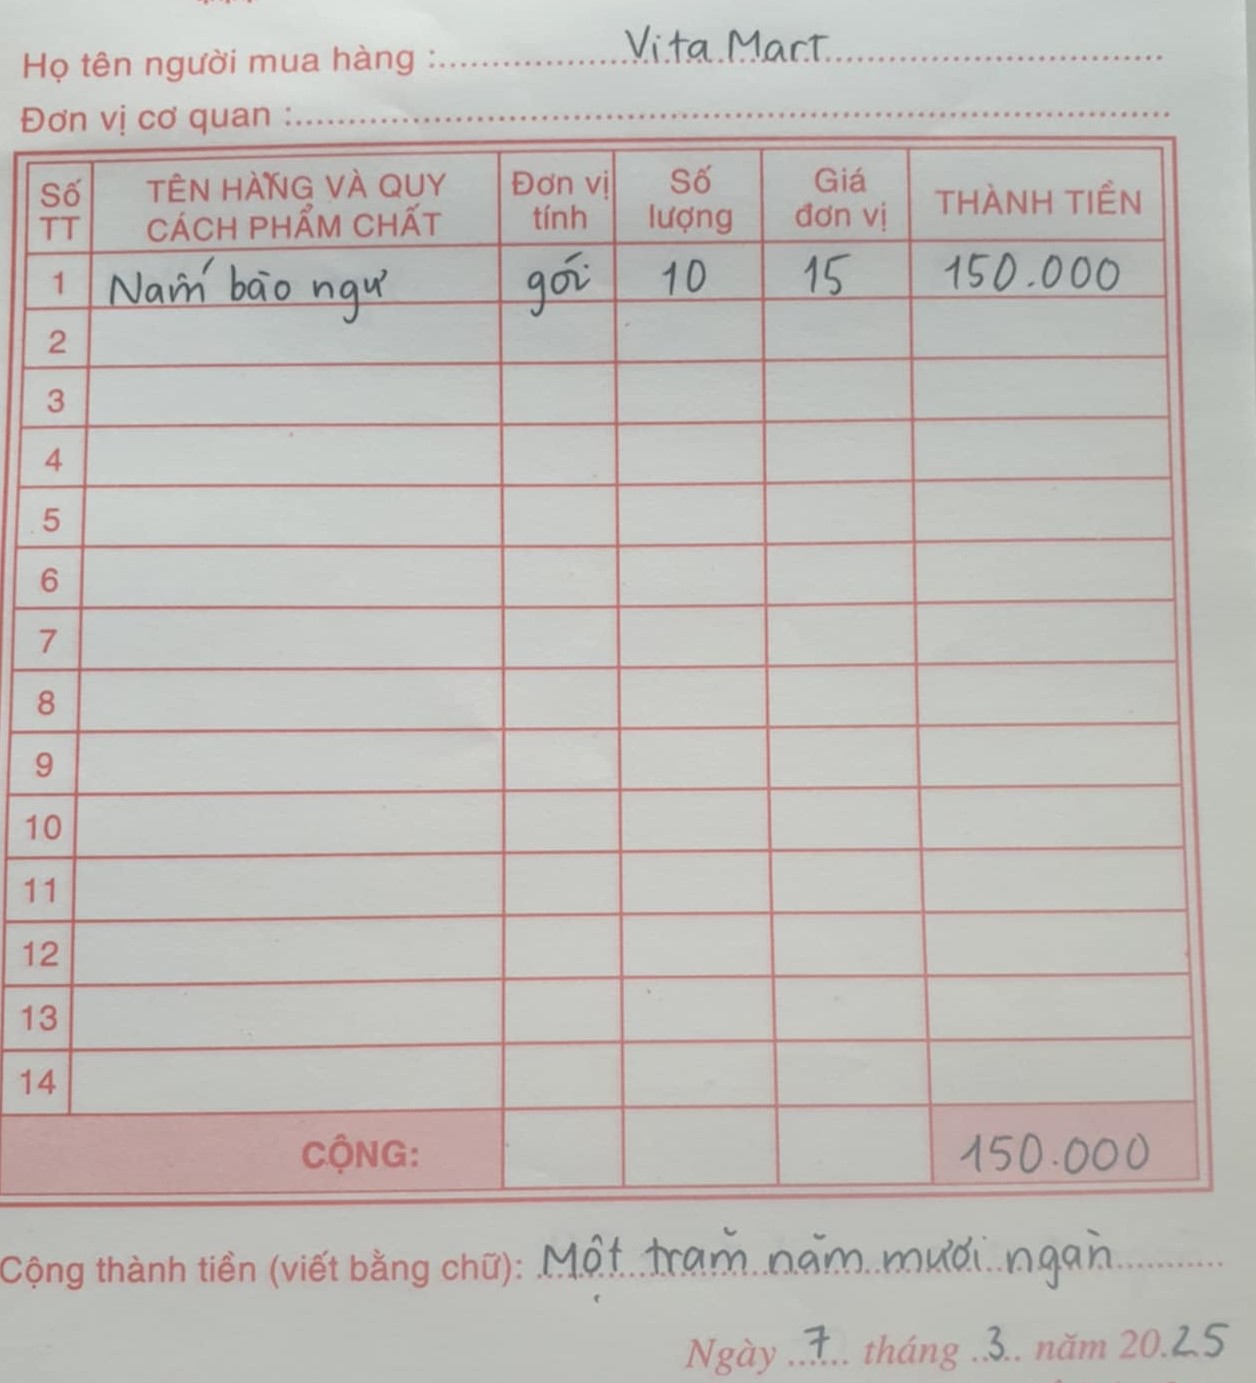 Họ tên người mua hàng : Vita Mart
Đơn vị cơ quan :
Số TT TÊN HÀNG VÀ QUY CÁCH PHẨM CHẤT Đơn vị tính Số lượng Giá đơn vị THÀNH TIỀN
1 Nấm bào ngư gói 10 15 150.000
2
3
4
5
6
7
8
9
10
11
12
13
14
CỘNG: 150.000
Cộng thành tiền (viết bằng chữ): Một trăm năm mươi ngàn
Ngày 7 tháng 3 năm 2025